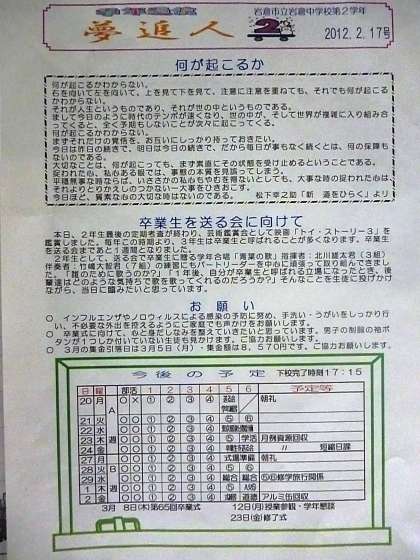 学年通信
夢追人
2
岩倉市立岩倉中学校第2学年
2012.2.17号
何が起こるか
何が起こるかわからない。
右を向いて左を向いて、上を見て下を見て、注意に注意を重ねても、それでも何が起こるかわからない。
それが人生というものであり、それが世の中というものである。
まして今日のように時代のテンポが速くなり、世の中が、そして世界が複雑に入り組み合ってくると、全く予期もしないことが次々に起こってくる。
何が起こるかわからない。
まずそれだけの覚悟を、お互いにしっかり持っておきたい。
今日は昨日の続きで、明日は今日の続きで、だから毎日が事もなく続くとは、何の保障もないのである。
大切なことは、何が起こっても、まず素直にその状態を受け止めるということである。
捉われた心、私心ある眼では、事態の本質を見誤ってしまう。
平穏無事な時ならば、いささかの私心もやわを雅なといえども、大事な時の捉われた心は、それよりとりかえしのつかない一大事をひきおこす。
今日ほど、素直な心の大切な時はないのである。
松下幸之助「新 道をひらく」より
卒業生を送る会に向けて
本日、2年生最後の定期考査が終わり、芸術鑑賞会として映画「トイ・ストーリー3」を鑑賞しました。毎年この時期より、3年生は卒業生と呼ばれることが多くなります。卒業生を送る会まであと1週間となりました。
2年生として、送る会で卒業生に贈る学年合唱「青葉の歌」指揮者：北川雄太君（3組）伴奏者：竹嶋大智君（7組）の練習にもパートリーダーを中心に頑張って取り組んできました。「誰のために歌うのか」「1年後、自分が卒業生と呼ばれる立場になったとき、後輩達はどのような気持ちで歌を歌ってくれるのだろうか?」そんなことを生徒に投げかけながら、当日に臨みたいと思っています。
お願い
○ インフルエンザやノロウィルスによる感染の予防に努め、手洗い・うがいをしっかり行い、不必要な外出を控えるようにご家庭でも声かけをお願いします。
○ 卒業式に向けて、心と身だしなみを整えていきたいと思っています。男子の制服の袖ボタンが1つしか付いていない生徒も見かけます。ご協力お願いします。
○ 3月の集金引落日は3月5日（月）・集金額は8，570円です。ご協力お願いします。
今後の予定 下校完了時刻17：15
日 曜 部活 1 2 3 4 5 6 予定等
20 月 A ○ × ① ② ③ ④ 朝礼
21 火 ○ ○ ① ② ③ ④ ⑤ ⑥
22 水 ○ ○ ① ② ③ ④
23 木 週 ○ ○ ① ② ③ ④ ⑤ 学活 月例資源回収
24 金 ○ ○ ① ② ③ ④ 〃 短縮日課
27 月 ○ ○ ① ② ③ ④ 式場準備 朝礼
28 火 B ○ ○ ① ② ③ ④ ⑤ ⑥
29 水 ○ ○ ① ② ③ ④ 総合 総合 ⑤⑥修学旅行関係
1 木 週 ○ ○ ① ② ③ ④ ⑤
2 金 ○ ○ ① ② ③ ④ 道徳 アルミ缶回収
3月 8日(木)第65回卒業式 12日(月)授業参観・学年懇談
23日(金)修了式